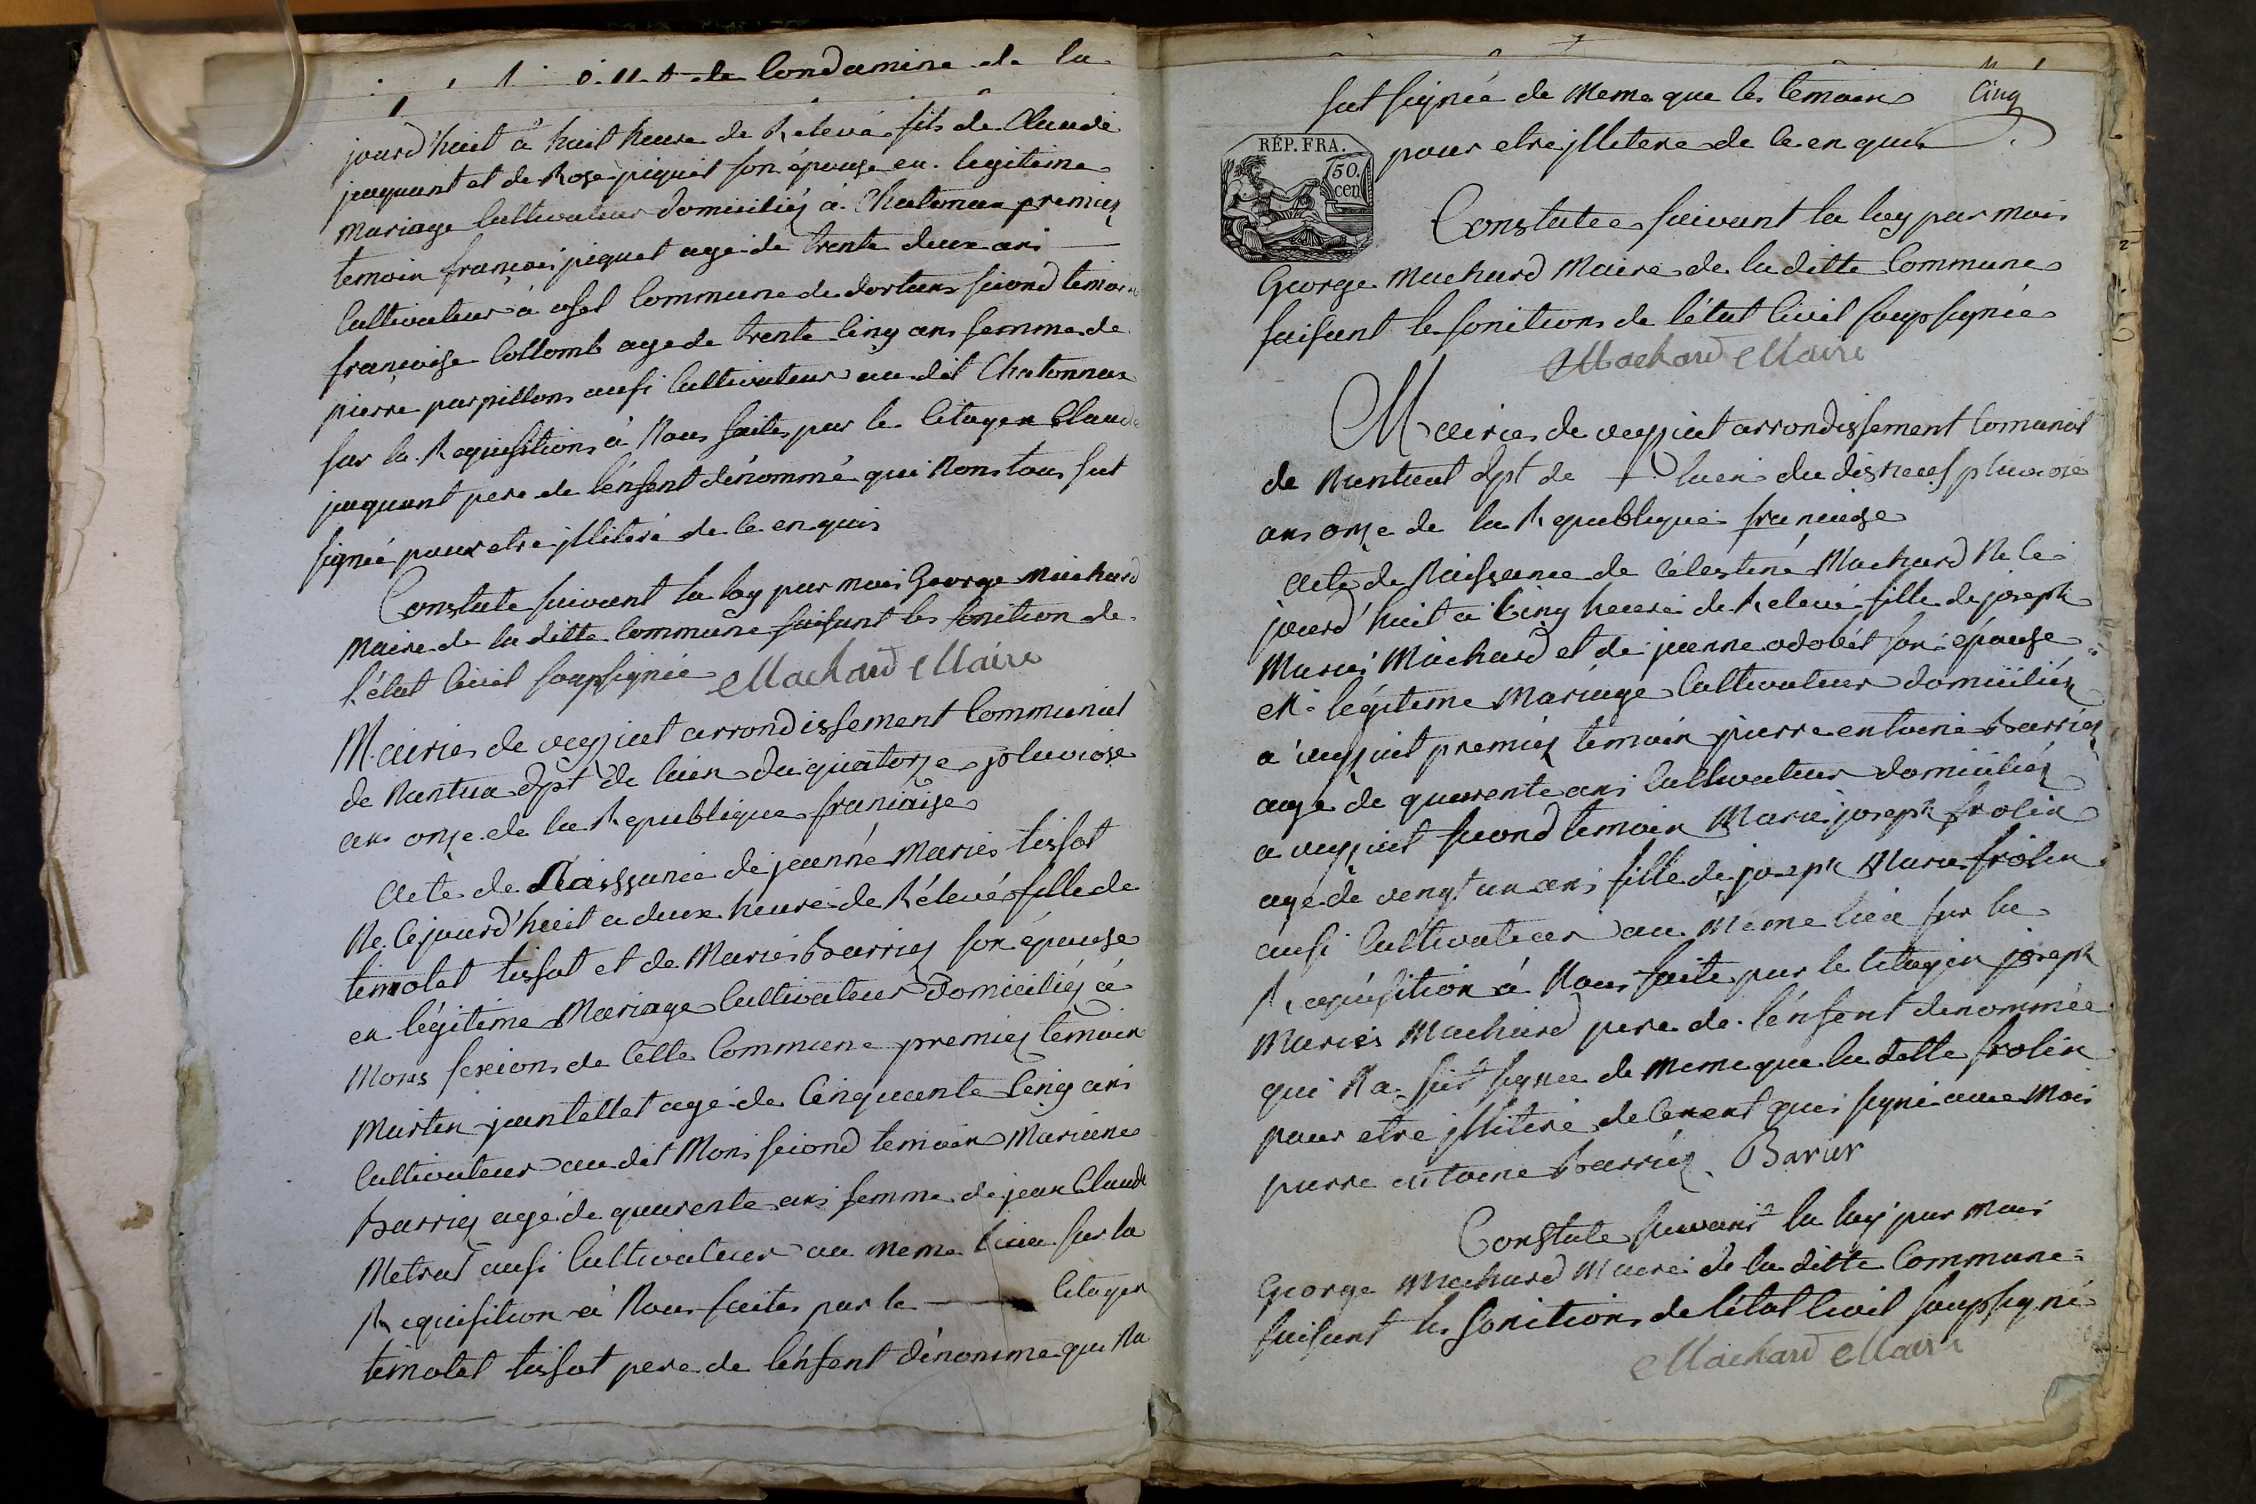 de Condamine de la
jourd'huit à huit heure de Relevé fils de Claude
juquant et de Rose piquet son épouse en legitime
mariage Cultivateur domiciliez à Chatonnax premiez
temoin françois piquet agé de trente deux ans
Cultivateur à uffel Commune de dortans second temoin
françoise Collomb age de trente Cinq ans femme de
pierre parpillons ausi Cultivateur au dit Chatonnax
sur la Requisitions à Nous faites par le Citoyen Claude
juquant pere de l'énfent dénommé qui Nons tous sut
signié pour etre illiteré de ce enquis
Constate suivant la loy par moi George Machard
Maire de la ditte Commune faisant les fonition de
l'état Civil soupsignié Machard Maire
Mairies de veyziat arrondissement Communal
de Nantua dpt de lain du quatorze pluviose
ans onze de la Republique française
Acte de Naissance de jeanne Maries tissot
Né Cejourd'huit a deux heure de Rélevé fille de
timolet tissot et de Maries barriez son épouse
en légitime Mariage Cultivateur domiciliéz à
Mons sexions de Cette Commune premiez témoin
Martin jantellet agé de Cinquante Cinq ans
Cultivateur au dit Mons second temoin Mariane
barriez agé de quarente ans femme de jean Claude
Metral ausi Cultivateur au meme lieu sur la
Requisition à Nous faites par le Citoyen
timolet tissot pere de lénfent dénommé qui Na
sut signiée de Meme que les temoins Cinq
RÉP. FRA.
50.
cen
pour etre illitere de ce en quis
Constatée suivant la loy par moi
George Machard Maire de la ditte Commune
faisant les fonitions de l'état Civil soupsignié
Machard Maire
Mairies de veyziat arrondissement Comunal
de Nantuat dpt de + luen du disneuf pluviose
ans onze de la Republique française
Acte de Naissance de Célestine Machard Né Ce
jourd'huit a Cinq heure de Relevé fille de joseph
Maries Machard et de jeanne odobét son épouse
en légitime Mariage Cultivateur domiciliéz
a veyziat premiez temoin pierre entoine barriez
age de quarente ans Cultivateur domiciliéz
a veyziat second temoin Maries joseph frolin
age de vengt un ans fille de joseph Marie frolin
ausi Cultivateur au Méme lieu sur la
Requisition à Nous faite par le Citoyen joseph
Maries Machard pere de lénfent denommée
qui Na sut signee de Meme que la ditte frolin
pour etre illiteré de Ce signé avec Moi
pierre entoine barriéz. Barier
Constate suivant la loy par moi
George Machard Maire de la ditte Commune
faisant les fonitions de létat Civil soupsigné
Machard Maire